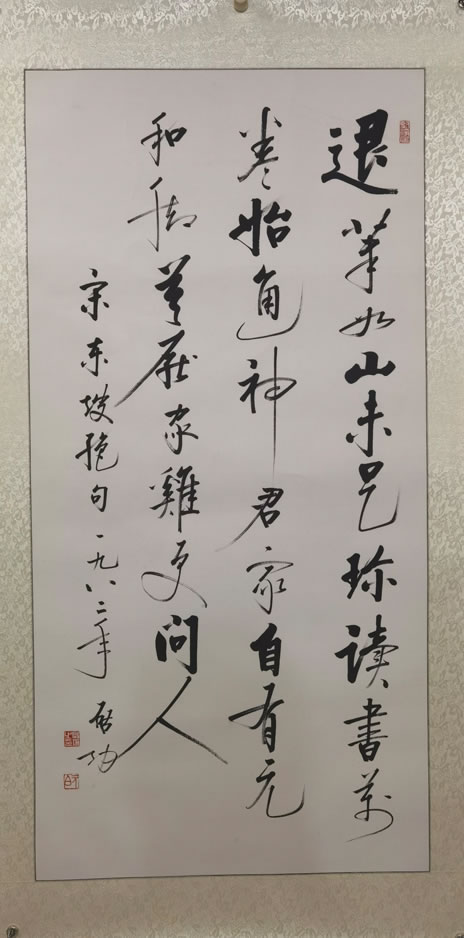 退筆如山未足珍讀書萬
卷始通神君家自有元
和脚莫厭家雞更問人
宋東坡絕句一九八二年 啟功